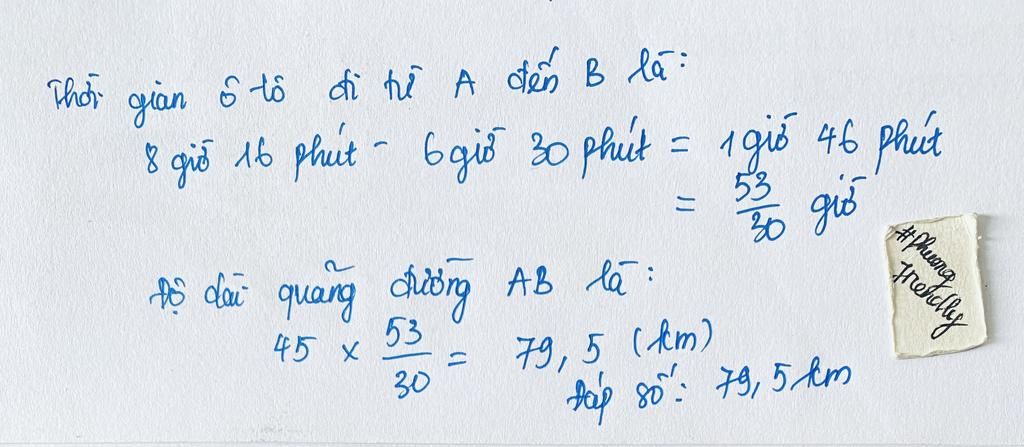 Thời gian ô tô đi từ A đến B là:
8 giờ 16 phút - 6 giờ 30 phút = 1 giờ 46 phút
= 53/30 giờ
Độ dài quãng đường AB là:
45 × 53/30 = 79,5 (km)
Đáp số: 79,5 km
#Phuong
Friendly